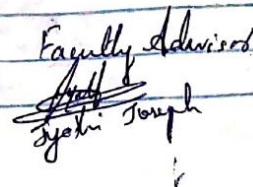 Faculty Advisor
Jyothi Joseph